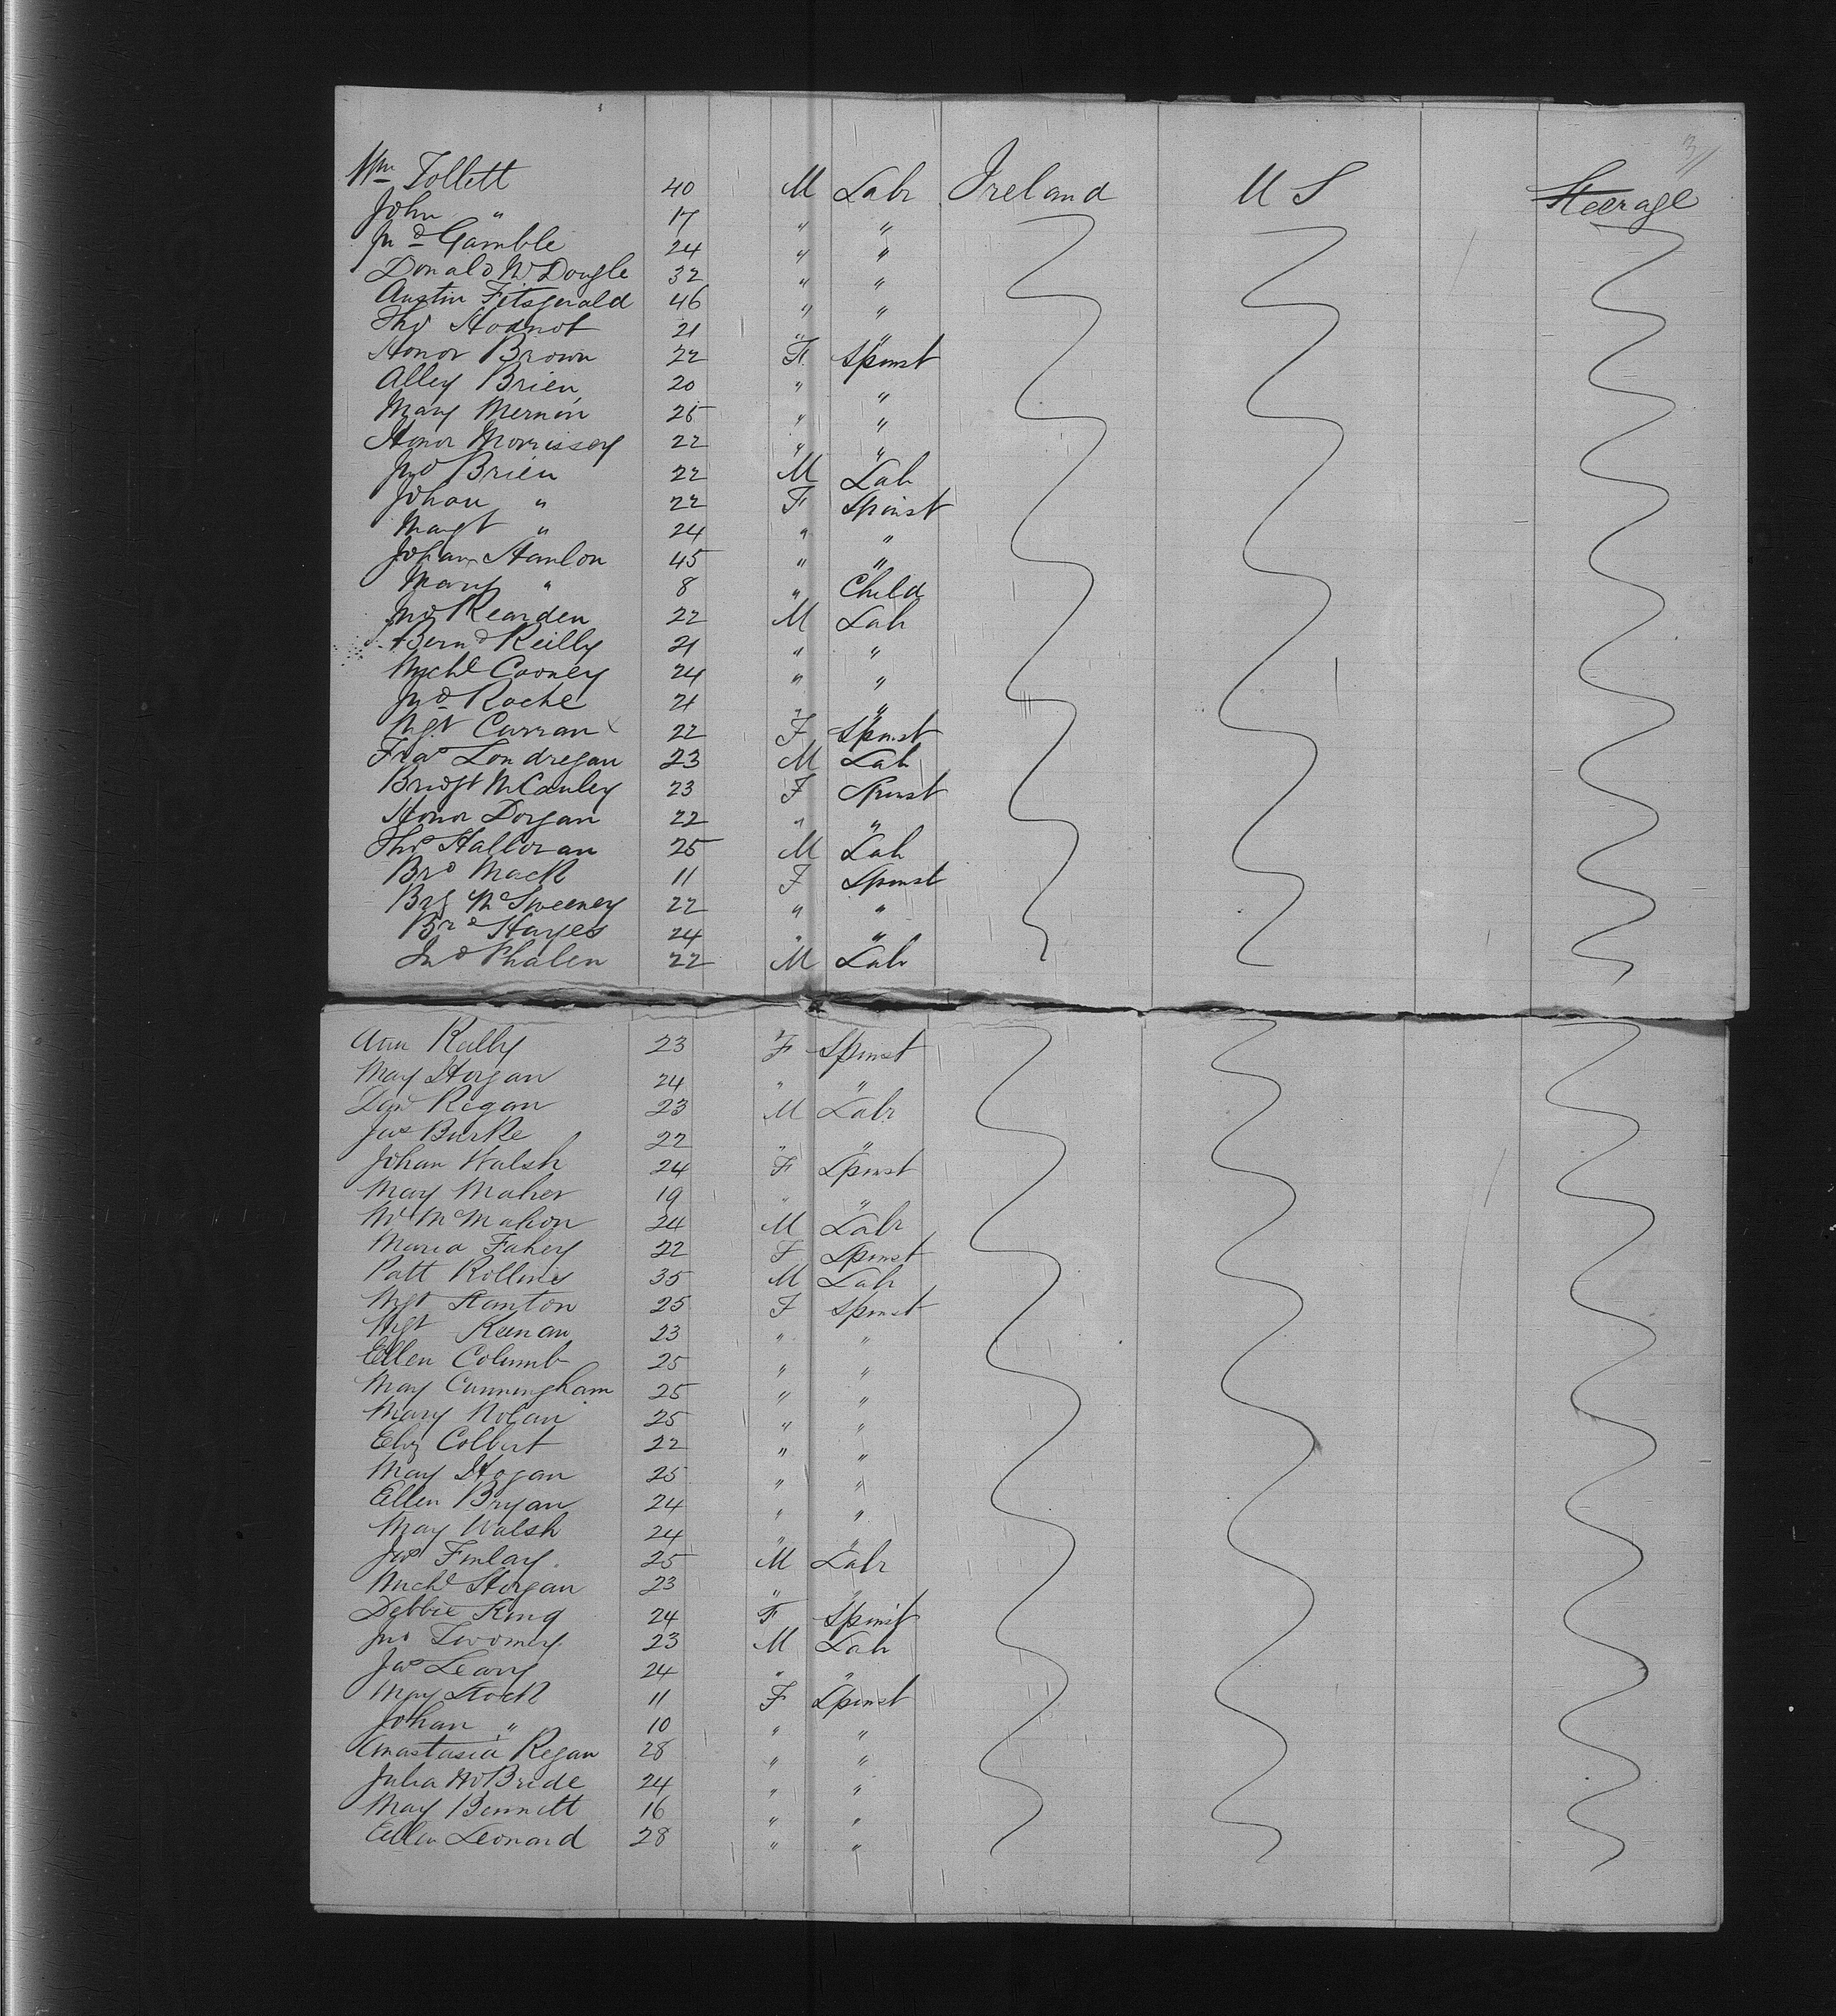 Wm Tollett 40 M Labr Ireland U S Steerage
John " 17 " "
Jno Gamble 24 " "
Donald McDougle 32 " "
Austin Fitzgerald 46 " "
Tho Hodnot 21 " "
Honor Brown 22 F Spinst
Alley Brien 20 " "
Mary Mernin 25 " "
Honor Morrissey 22 " "
Jno Brien 22 M Lab
Johan " 22 F Spinst
Margt " 24 " "
Johan Hanlon 45 " "
Mary " 8 " Child
Jno Rearden 22 M Lab
Bernd Reilly 21 " "
Michl Cooney 24 " "
Jno Roche 21 " "
Mgt Curran 22 F Spinst
Fras Londregan 23 M Lab
Bridgt McCauley 23 F Spinst
Honor Dorgan 22 " "
Tho Halloran 25 M Lab
Brd Mack 11 F Spinst
Brg McSweeney 22 " "
Brd Hayes 24 " "
Jno Phalen 22 M Lab
Ann Kelly 23 F Spinst
May Horgan 24 " "
Danl Regan 23 M Labr
Jas Burke 22 " "
Johan Walsh 24 F Spinst
May Maher 19 " "
McMahon 24 M Labr
Maria Fahey 22 F Spinst
Patt Rollins 35 M Lab
Mgt Stanton 25 F Spinst
Mgt Keenan 23 " "
Ellen Columb 25 " "
May Cunningham 25 " "
Mary Nolan 25 " "
Eliz Colbert 22 " "
May Hogan 25 " "
Ellen Bryan 24 " "
May Walsh 24 " "
Jas Finlay. 25 M Labr
Michl Horgan 23 " "
Debbie King 24 F Spinst
Jno Twomey 23 M Lab
Jas Leary 24 " "
May Stock 11 F Spinst
Johan " 10 " "
Anastasia Regan 28 " "
Julia McBride 24 " "
May Bennett 16 " "
Ellen Leonard 28 " "